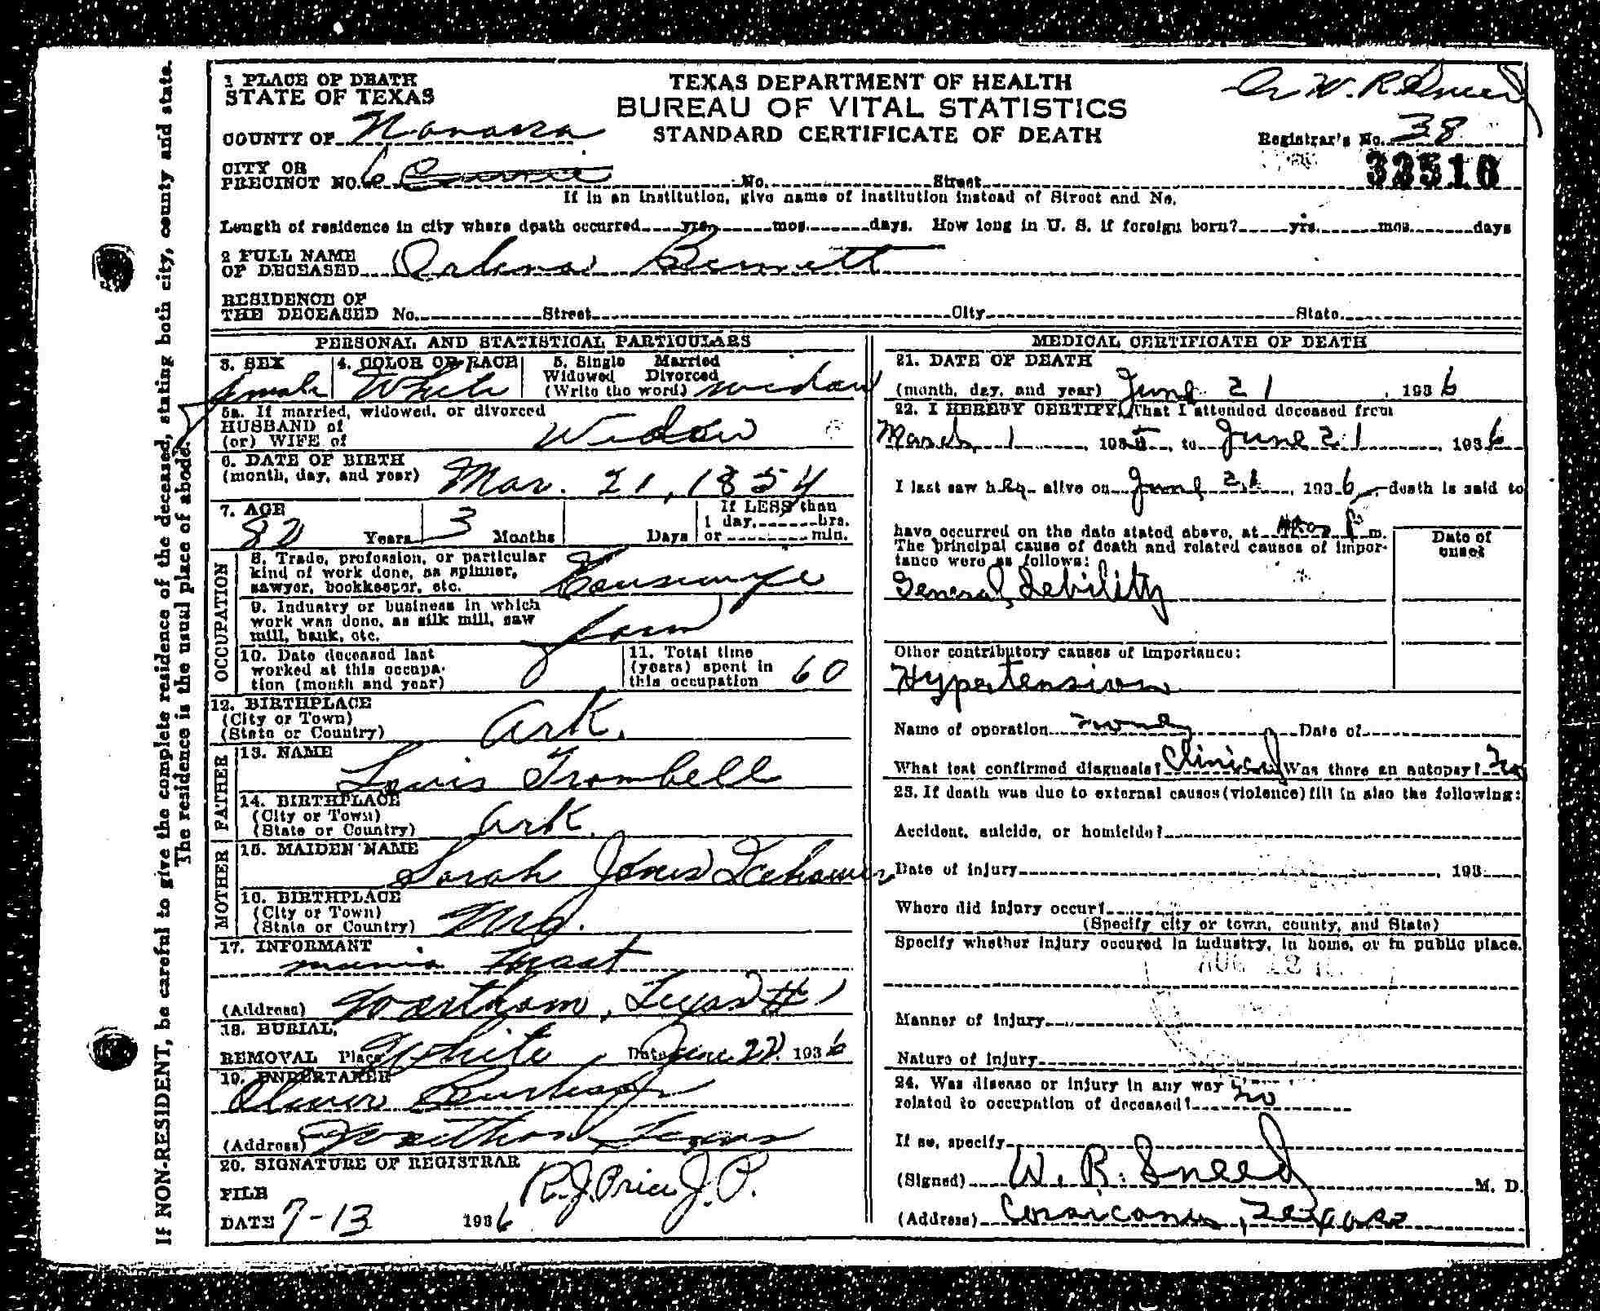 1 PLACE OF DEATH
STATE OF TEXAS
TEXAS DEPARTMENT OF HEALTH
BUREAU OF VITAL STATISTICS
STANDARD CERTIFICATE OF DEATH
Dr W. R. Sneed
COUNTY OF Navarro
Registrar's No. 38
32516
CITY OR
PRECINCT NO. 6 No. Street
If in an institution, give name of institution instead of Street and No.
Length of residence in city where death occurred yrs. mos. days. How long in U. S. if foreign born? yrs. mos. days
2 FULL NAME
OF DECEASED Bennett
RESIDENCE OF
THE DECEASED No. Street City State
PERSONAL AND STATISTICAL PARTICULARS
3. SEX
female
4. COLOR OR RACE
White
5. Single Married
Widowed Divorced
(Write the word) widow
5a. If married, widowed, or divorced
HUSBAND of
(or) WIFE of Widow
6. DATE OF BIRTH
(month, day, and year) Mar. 21, 1854
7. AGE
82 Years 3 Months Days
If LESS than
1 day, hrs.
or min.
OCCUPATION
8. Trade, profession, or particular
kind of work done, as spinner,
sawyer, bookkeeper, etc. Housewife
9. Industry or business in which
work was done, as silk mill, saw
mill, bank, etc. farm
10. Date deceased last
worked at this occupa-
tion (month and year)
11. Total time
(years) spent in
this occupation 60
12. BIRTHPLACE
(City or Town)
(State or Country) Ark.
FATHER
13. NAME
Lewis Trombell
14. BIRTHPLACE
(City or Town)
(State or Country) Ark.
MOTHER
15. MAIDEN NAME
Sarah
16. BIRTHPLACE
(City or Town)
(State or Country) Mo.
17. INFORMANT
(Address) Wortham, Texas #1
18. BURIAL,
REMOVAL Place White Date June 22, 1936
19. UNDERTAKER
Oliver
(Address) Wortham Texas
20. SIGNATURE OF REGISTRAR
R. J. Price J. P.
FILE
DATE 7-13 1936
MEDICAL CERTIFICATE OF DEATH
21. DATE OF DEATH
(month, day, and year) June 21, 1936
22. I HEREBY CERTIFY, That I attended deceased from
March 1 1935, to June 21, 1936
I last saw her alive on June 21, 1936, death is said to
have occurred on the date stated above, at P m.
The principal cause of death and related causes of impor-
tance were as follows:
Date of
onset
General Debility
Other contributory causes of importance:
Hypertension
Name of operation Date of
What test confirmed diagnosis? Clinical Was there an autopsy? No
23. If death was due to external causes (violence) fill in also the following:
Accident, suicide, or homicide?
Date of injury , 193
Where did injury occur?
(Specify city or town, county, and State)
Specify whether injury occured in industry, in home, or in public place.
AUG 12
Manner of injury
Nature of injury
24. Was disease or injury in any way
related to occupation of deceased? no
If so, specify
(Signed) W. R. Sneed M. D.
(Address) Corsicana, Texas
If NON-RESIDENT, be careful to give the complete residence of the deceased, stating both city, county and state.
The residence is the usual place of abode.